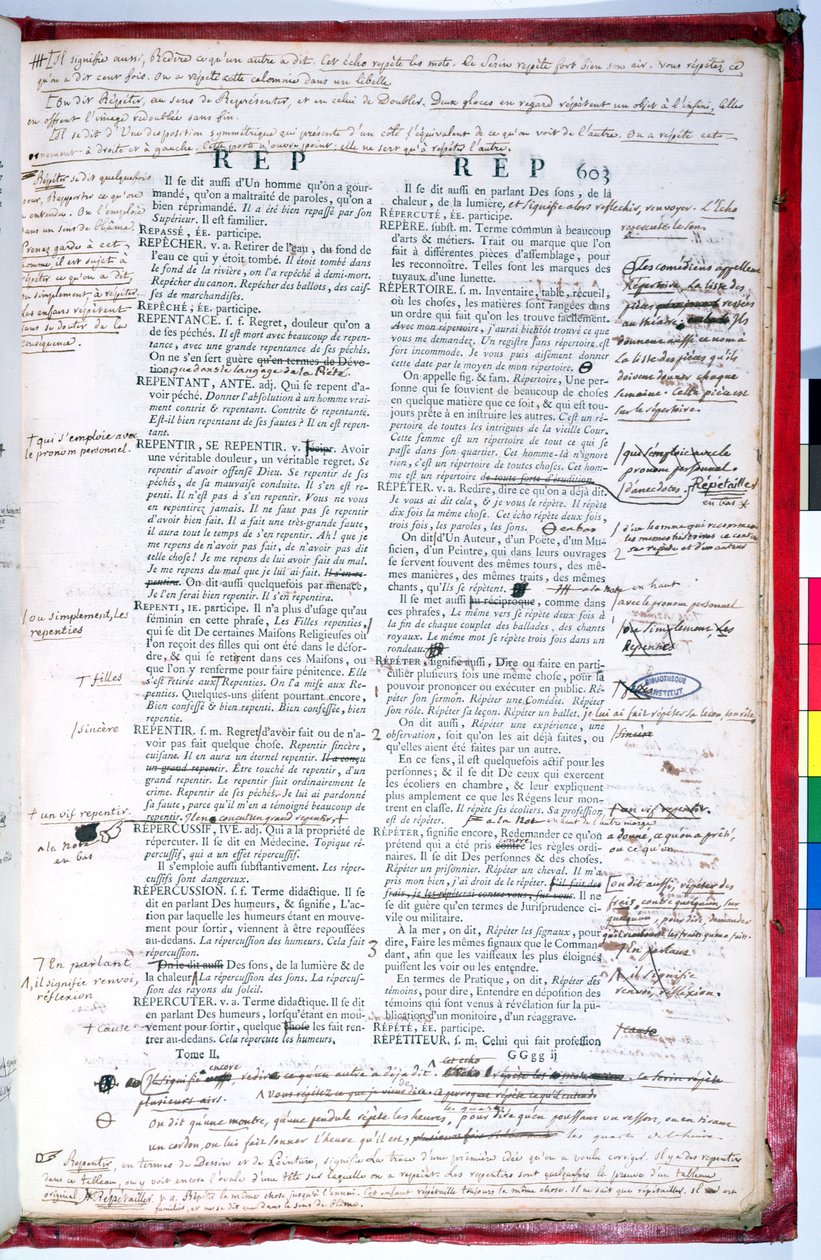 Il signifie aussi, Redire ce qu'un autre a dit. Cet écho repète les mots. Le Serin repète fort bien son air. vous répétez ce
qu'on a dit cent fois. On a repeté cette calomnie dans un libelle.
On dit Répéter, au sens de Représenter, et en celui de Doubler. Deux glaces en regard répètent un objet à l'infini, Elles
en offrent l'image redoublée sans fin.
Il se dit d'Une disposition symmétrique qui présente d'un côté l'équivalent de ce qu'on voit de l'autre. On a répété cet
ornement à droite et à gauche. Cette porte n'ouvre point; elle ne sert qu'à répéter l'autre.
REP
Répéter se dit quelquefois
Rapporter ce qu'on
a entendu. On l'emploie
dans un sens de blâme.
Prenez garde à cet
homme, il est sujet à
répéter ce qu'on a dit,
ou simplement, à répéter.
Les enfans répètent
sans se douter de la
conséquence.
Il se dit aussi d'Un homme qu'on a gour-
mandé, qu'on a maltraité de paroles, qu'on a
bien réprimandé. Il a été bien repassé par son
Supérieur. Il est familier.
REPASSÉ, ÉE. participe.
REPÊCHER. v. a. Retirer de l'eau, du fond de
l'eau ce qui y étoit tombé. Il étoit tombé dans
le fond de la rivière, on l'a repêché à demi-mort.
Repêcher du canon. Repêcher des ballots, des cais-
ses de marchandises.
REPÊCHÉ, ÉE. participe.
REPENTANCE. s. f. Regret, douleur qu'on a
de ses péchés. Il est mort avec beaucoup de repen-
tance, avec une grande repentance de ses péchés.
On ne s'en sert guère qu'en termes de Dévo-
tion que dans le langage de la Piété.
REPENTANT, ANTE. adj. Qui se repent d'a-
voir péché. Donner l'absolution à un homme vrai-
ment contrit & repentant. Contrite & repentante.
Est-il bien repentant de ses fautes? Il en est repen-
tant.
† qui s'emploie avec
le pronom personnel.
REPENTIR, SE REPENTIR. v. récipr. Avoir
une véritable douleur, un véritable regret. Se
repentir d'avoir offensé Dieu. Se repentir de ses
péchés, de sa mauvaise conduite. Il s'en est re-
penti. Il n'est pas à s'en repentir. Vous ne vous
en repentirez jamais. Il ne faut pas se repentir
d'avoir bien fait. Il a fait une très-grande faute,
il aura tout le temps de s'en repentir. Ah! que je
me repens de n'avoir pas fait, de n'avoir pas dit
telle chose! Je me repens de lui avoir fait du mal.
Je me repens du mal que je lui ai fait. Il s'en re-
pentira. On dit aussi quelquefois par menace,
Je l'en ferai bien repentir. Il s'en repentira.
ou simplement, Les
repenties
REPENTI, IE. participe. Il n'a plus d'usage qu'au
féminin en cette phrase, Les Filles repenties,
qui se dit De certaines Maisons Religieuses où
l'on reçoit des filles qui ont été dans le désor-
dre, & qui se retirent dans ces Maisons, ou
que l'on y renferme pour faire pénitence. Elle
s'est retirée aux Repenties. On l'a mise aux Re-
penties. Quelques-uns disent pourtant encore,
Bien confessé & bien repenti. Bien confessée, bien
repentie.
† filles
/sincère
REPENTIR. s. m. Regret d'avoir fait ou de n'a-
voir pas fait quelque chose. Repentir sincère,
cuisant. Il en aura un éternel repentir. Il a conçu
un grand repentir. Être touché de repentir, d'un
grand repentir. Le repentir suit ordinairement le
crime. Repentir de ses péchés. Je lui ai pardonné
sa faute, parce qu'il m'en a témoigné beaucoup de
repentir. Il en a conçu un grand repentir, †
† un vif repentir.
a la Note
en bas
RÉPERCUSSIF, IVE. adj. Qui a la propriété de
répercuter. Il se dit en Médecine. Topique ré-
percussif, qui a un effet répercussif.
Il s'emploie aussi substantivement. Les réper-
cussifs sont dangereux.
RÉPERCUSSION. s. f. Terme didactique. Il se
dit en parlant Des humeurs, & signifie, L'ac-
tion par laquelle les humeurs étant en mouve-
ment pour sortir, viennent à être repoussées
au-dedans. La répercussion des humeurs. Cela fait
répercussion.
7 En parlant
Λ, il signifie renvoi,
réflexion
On le dit aussi Des sons, de la lumière & de
la chaleur. La répercussion des sons. La répercus-
sion des rayons du soleil.
RÉPERCUTER. v. a. Terme didactique. Il se dit
en parlant Des humeurs, lorsqu'étant en mou-
vement pour sortir, quelque chose les fait ren-
trer au-dedans. Cela répercute les humeurs,
† cause
Tome II.
REP 603
Il se dit aussi en parlant Des sons, de la
chaleur, de la lumière, et signifie alors réfléchir, renvoyer. L'Echo
répercute les sons.
RÉPERCUTÉ, ÉE. participe.
REPÈRE. subst. m. Terme commun à beaucoup
d'arts & métiers. Trait ou marque que l'on
fait à différentes pièces d'assemblage, pour
les reconnoître. Telles sont les marques des
tuyaux d'une lunette.
RÉPERTOIRE. s. m. Inventaire, table, recueil,
où les choses, les matières sont rangées dans
un ordre qui fait qu'on les trouve facilement.
Avec mon répertoire, j'aurai bientôt trouvé ce que
vous me demandez. Un registre sans répertoire est
fort incommode. Je vous puis aisément donner
cette date par le moyen de mon répertoire.
les comédiens appellent
Répertoire, la liste des
pièces restées
au théâtre. Ils
donnent aussi ce nom à
la liste des pièces qu'ils
doivent donner chaque
semaine. Cette pièce est
sur le répertoire.
On appelle fig. & fam. Répertoire, Une per-
sonne qui se souvient de beaucoup de choses
en quelque matière que ce soit, & qui est tou-
jours prête à en instruire les autres. C'est un ré-
pertoire de toutes les intrigues de la vieille Cour.
Cette femme est un répertoire de tout ce qui se
passe dans son quartier. Cet homme-là n'ignore
rien, c'est un répertoire de toutes choses. Cet hom-
me est un répertoire de toute sorte d'érudition.
qui s'emploie avec le
pronom personnel
d'anecdotes. Répétailler
en bas
RÉPÉTER. v. a. Redire, dire ce qu'on a déjà dit.
Je vous ai dit cela, & je vous le répète. Il répète
dix fois la même chose. Cet écho répète deux fois,
trois fois, les paroles, les sons. en bas
On dit d'Un Auteur, d'un Poëte, d'un Mu-
sicien, d'un Peintre, qui dans leurs ouvrages
se servent souvent des mêmes tours, des mê-
mes manières, des mêmes traits, des mêmes
chants, qu'Ils se répètent. a la Note en haut
/ d'un homme qui recommence
les mêmes histoires
se répète et d'un auteur
Il se met aussi au réciproque, comme dans
ces phrases, Le même vers se répète deux fois à
la fin de chaque couplet des ballades, des chants
royaux. Le même mot se répète trois fois dans un
rondeau.
/avec le pronom personnel
ou simplement, Les
Repenties
BIBLIOTHÈQUE
INSTITUT
RÉPÉTER, signifie aussi, Dire ou faire en parti-
culier plusieurs fois une même chose, pour la
pouvoir prononcer ou exécuter en public. Ré-
péter son sermon. Répéter une Comédie. Répéter
son rôle. Répéter sa leçon. Répéter un ballet. je lui ai fait répéter sa leçon, son rôle
On dit aussi, Répéter une expérience, une
observation, soit qu'on les ait déjà faites, ou
qu'elles aient été faites par un autre.
/sincère
En ce sens, il est quelquefois actif pour les
personnes; & il se dit De ceux qui exercent
les écoliers en chambre, & leur expliquent
plus amplement ce que les Régens leur mon-
trent en classe. Il répète ses écoliers. Sa profession
est de répéter. a la Note en haut de l'autre marge
† un vif repentir.
RÉPÉTER, signifie encore, Redemander ce qu'on
prétend qui a été pris contre les règles ordi-
naires. Il se dit Des personnes & des choses.
Répéter un prisonnier. Répéter un cheval. Il m'a
pris mon bien, j'ai droit de le répéter. S'il fait des
frais, je les répéterai contre vous, sur vous. Il ne
se dit guère qu'en termes de Jurisprudence ci-
vile ou militaire.
a donné, ce qu'on a prêté,
ou ce qu'on
on dit aussi, répéter des
frais, contre quelqu'un, sur
quelqu'un, pour dire, demander
À la mer, on dit, Répéter les signaux, pour
dire, Faire les mêmes signaux que le Comman-
dant, afin que les vaisseaux les plus éloignés
puissent les voir ou les entendre.
En parlant
il signifie
renvoi, réflexion.
En termes de Pratique, on dit, Répéter des
témoins, pour dire, Entendre en déposition des
témoins qui sont venus à révélation sur la pu-
blication d'un monitoire, d'un réaggrave.
RÉPÉTÉ, ÉE. participe.
† cause
RÉPÉTITEUR, s. m. Celui qui fait profession
GGgg ij
Il signifie encore, redire ce qu'un autre a déja dit. cet echo répète les . Le Serin répète
plusieurs airs. Vous répétez ce que je viens de dire. Le perroquet répète ce qu'il entend
On dit qu'une montre, qu'une pendule répète les heures, les quarts, pour dire qu'en poussant un ressort, ou en tirant
un cordon, on lui fait sonner l'heure qu'il est, les quarts de l'heure.
Repentir, en termes de Dessin et de Peinture, signifie La trace d'une première idée qu'on a voulu corriger. Il y a des repentirs
dans ce tableau, on y voit encore l'ovale d'une tête sur laquelle on a repeint. Les repentirs sont quelquefois la preuve d'un tableau
original. Répétailler. v. a. Répéter la même chose jusqu'à l'ennui. Cet enfant répétaille toujours la même chose. Il ne fait que répétailler. Il est
familier, et ne se dit que dans le sens de blâme.